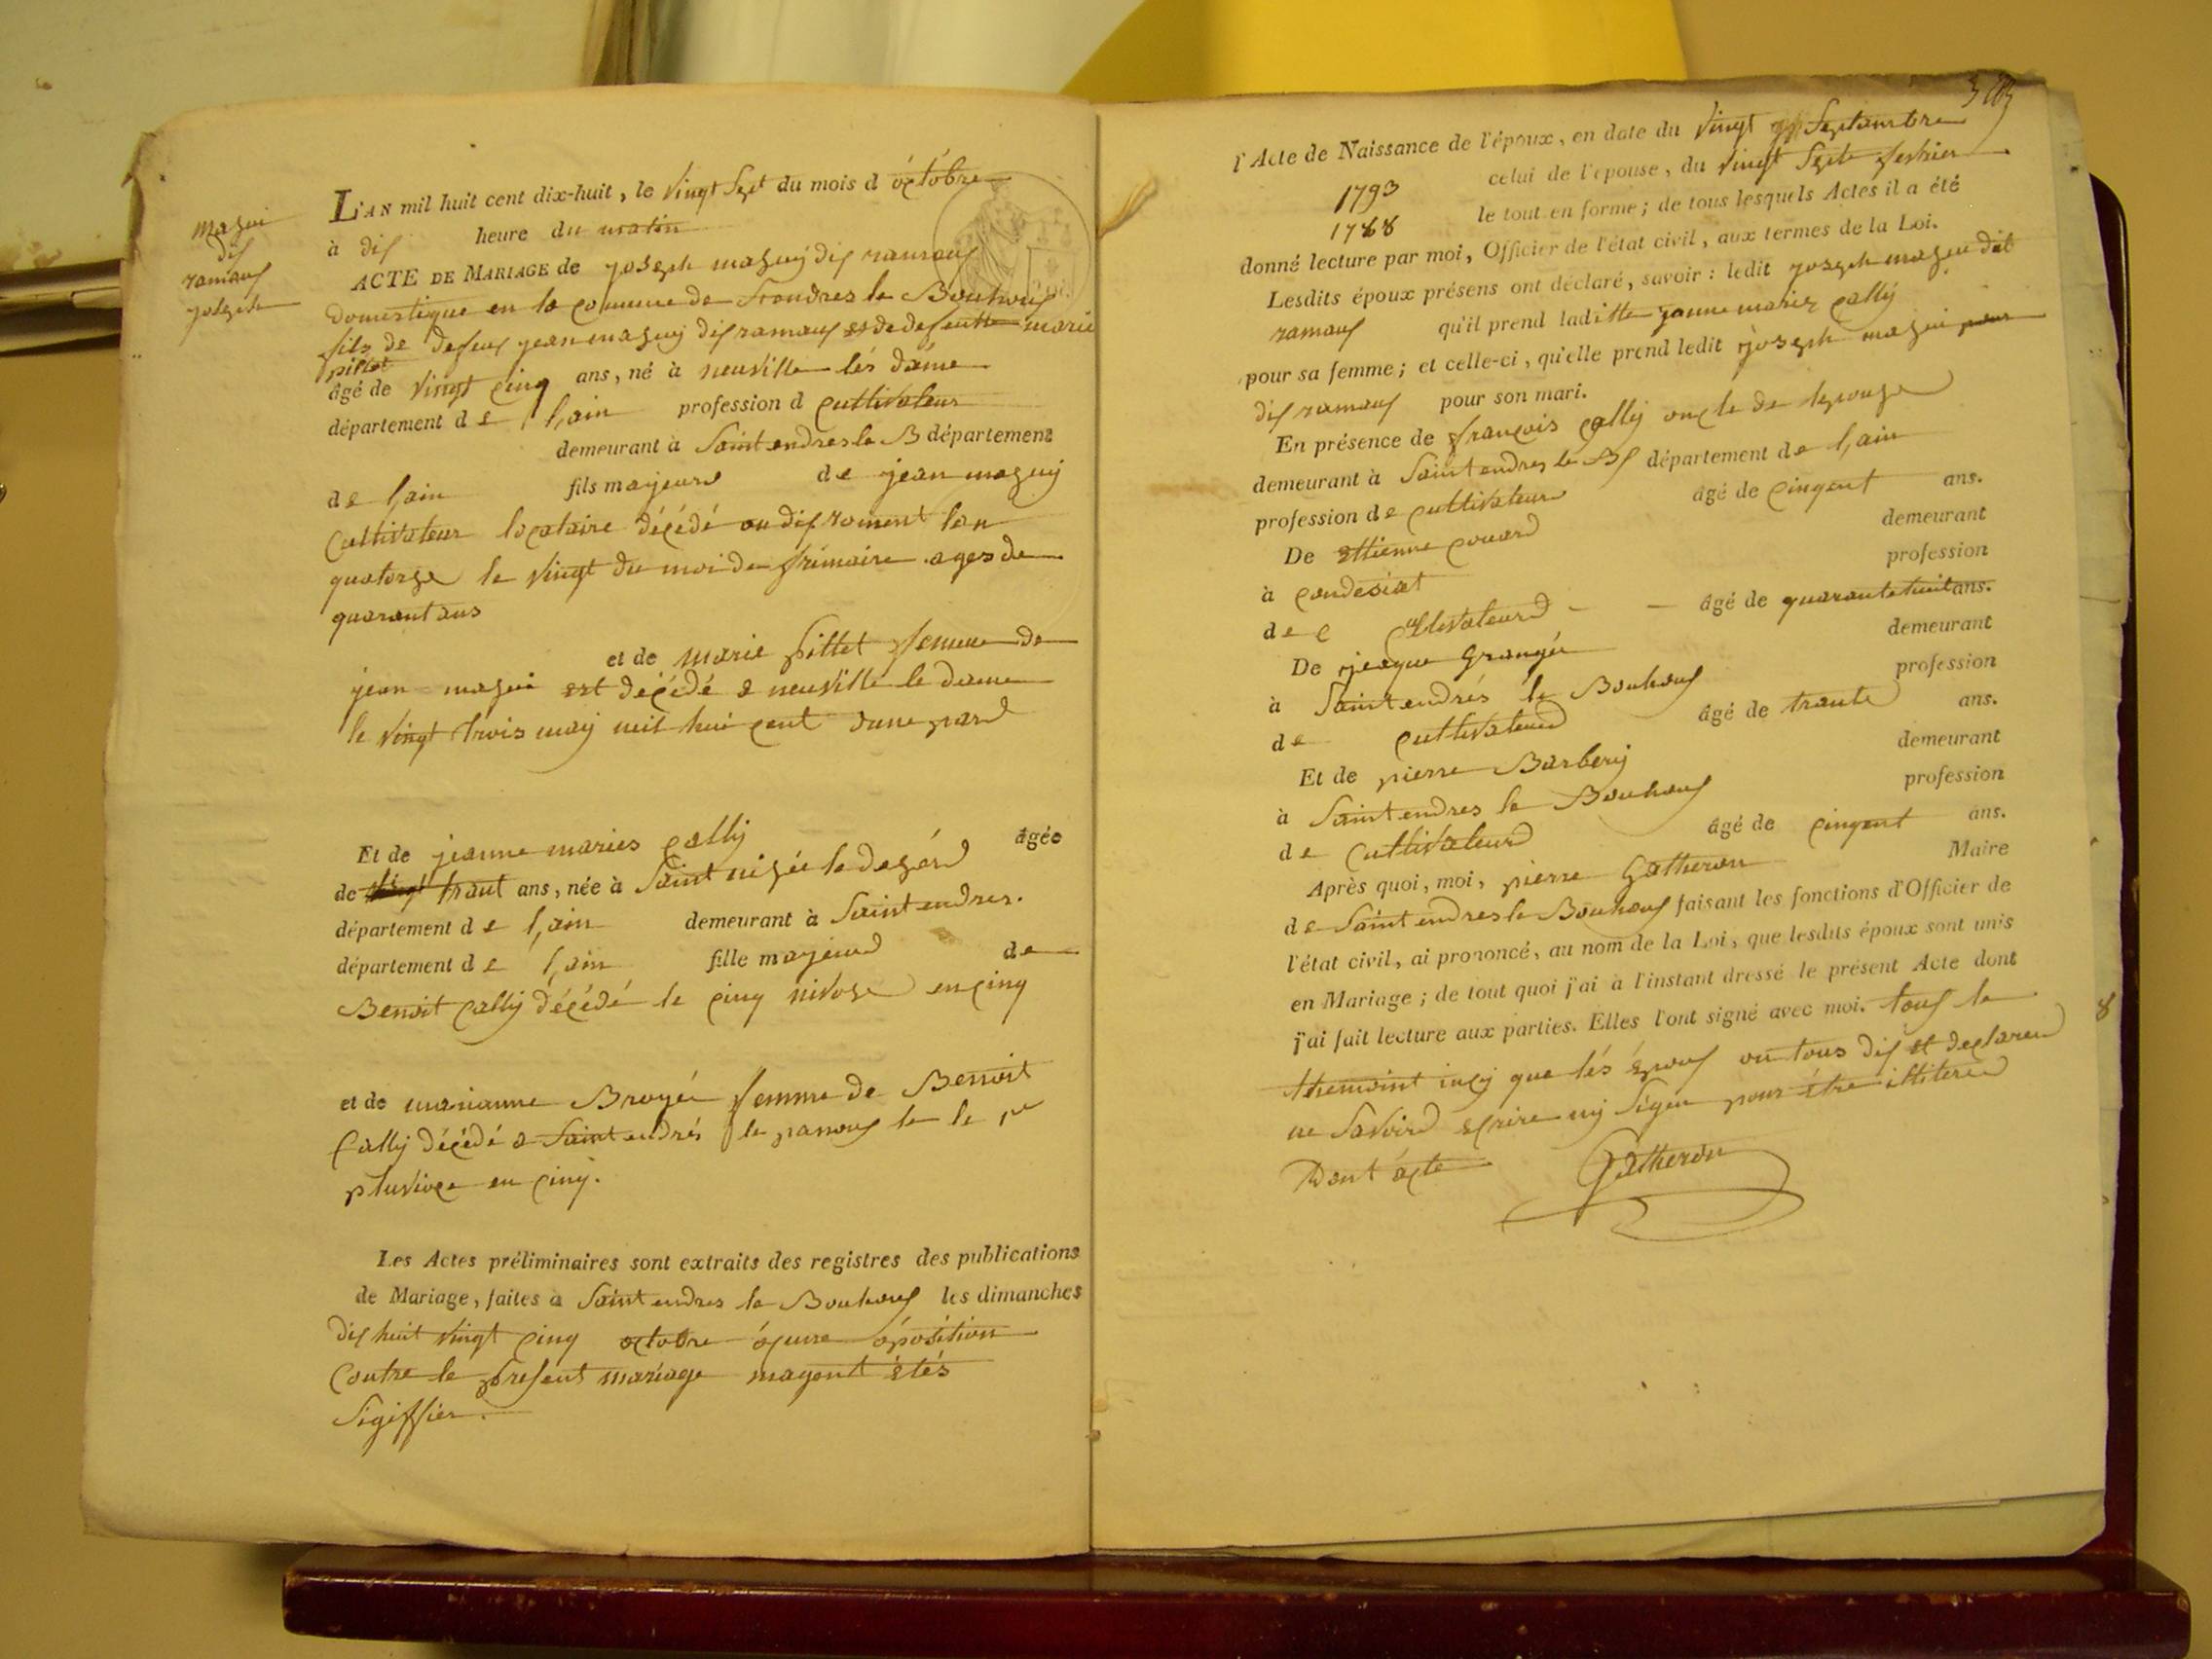 masui
dis
ramaus
joseph
L'AN mil huit cent dix-huit, le vingt Sept du mois d óctóbre
à dis heure du matin
ACTE DE MARIAGE de joseph masuij dis ramaus
domestique en la commune de Sendres le Bouhous
fils de defeus jean masuij dis ramaus et de defeutte marie
pittet
âgé de vingt cinq ans, né à neuville lés dáme
département de l,ain profession d cultivateur
demeurant à Saint endres le B département
de l,ain fils majeurd de jean masuij
Cultivateur locataire décédé au dis roment lan
quatorse le vingt du moi de frimaire . ages de
quarant ans
et de marie pittet femme de
jean masui est décédé a neuville le dame
le vingt trois maij mil hui cent dune pard
Et de jeanne maries cállij âgée
de trant ans, née à Saint nisée le desérd
département de l,ain demeurant à Saint endres.
département de l,ain fille majeurd de
Benoit callij décédé le cinq nivose en cinq
et de marianne Broyér femme de Benoit
Callij décédé a Saint endrés le panous le le 1er
pluvioce en cinq.
Les Actes préliminaires sont extraits des registres des publications
de Mariage, faites à Saint endres le Bouhous les dimanches
dis huit vingt cinq octobre óqune óposition
Contre le present mariage nayent étés
Sigiffier.
l'Acte de Naissance de l'époux, en date du vingt Septambre
1793 celui de l'épouse, du vingt Septe fevrier
1788 le tout en forme; de tous lesquels Actes il a été
donné lecture par moi, Officier de l'état civil, aux termes de la Loi.
Lesdits époux présens ont déclaré, savoir: ledit joseph masui dit
ramaus qu'il prend laditte janne maries callij
pour sa femme; et celle-ci, qu'elle prend ledit joseph masui pour
dis ramaus pour son mari.
En présence de françois callij oncle de lepouse
demeurant à Saint endres le B département de l,ain
profession de cultivateur âgé de cinqent ans.
De ettienne couard demeurant
à condesiat profession
de cultivateurd âgé de quarante huit ans.
De jeaque Grangér demeurant
à Saint endrés le Bouhous profession
de cultivateurd âgé de trante ans.
Et de pierre Barberij demeurant
à Saint endres le Bouhous profession
de Cultivateurd âgé de cinqent ans.
Après quoi, moi, pierre Gatheron Maire
de Saint endres le Bouhous faisant les fonctions d'Officier de
l'état civil, ai prononcé, au nom de la Loi, que lesdits époux sont unis
en Mariage; de tout quoi j'ai à l'instant dressé le présent Acte dont
j'ai fait lecture aux parties. Elles l'ont signé avec moi. tous le
themoint incij que lés époux on tous dis et declared
ne Savoird ecrire nij Signer pour être illitered
Dont ácte Gatheron